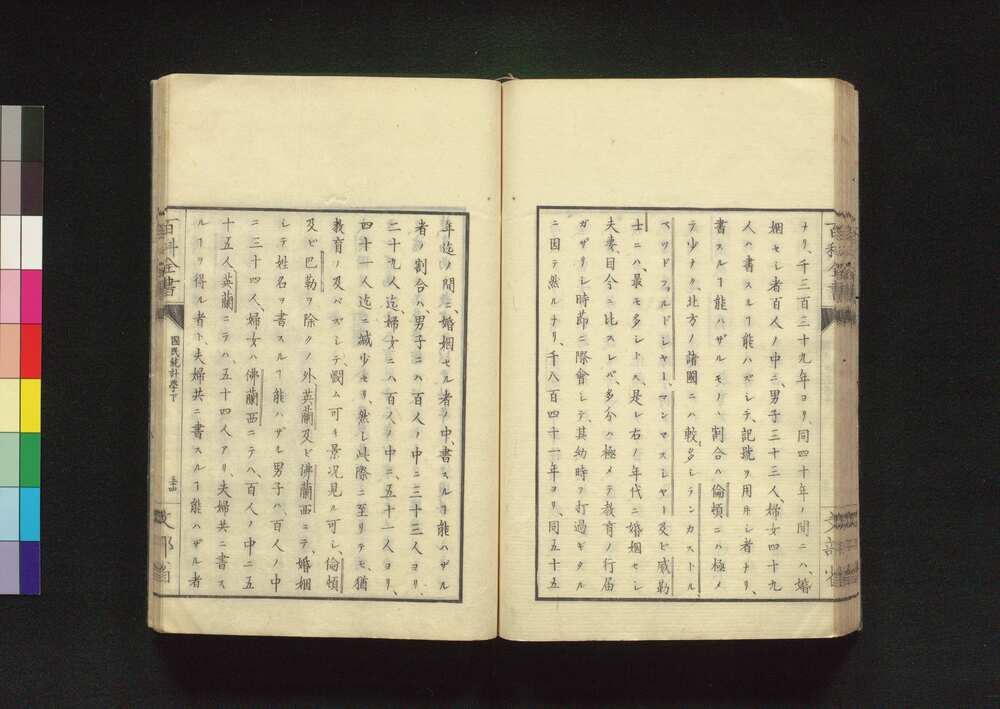 ナリ千三百三十九年ヨリ、同四十年ノ間ニハ、婚
姻セシ者百人ノ中ニ、男子三十三人、婦女四十九
人ハ書スルヿ能ハズシテ、記號ヲ用ヰシ者ナリ、
書スルヿ能ハザルモノヽ割合ハ倫頓ニハ極メ
テ少ナク、北方ノ諸國ニハ較多シ、ランカストル、
ベッドフォルドシャー、マンマスシャー及ビ威勒
士ニハ、最モ多シトス、是レ右ノ年代ニ婚姻セシ
夫妻、目今ニ比スレバ、多分ハ極メテ教育ノ行届
ガザリシ時節ニ際會シテ、其幼時ヲ打過ギタル
ニ因テ然ルナリ、千八百四十一年ヨリ、同五十五
百科全書
文部省
年迄ノ間ニ、婚姻セル者ノ中、書スルヿ能ハザル
者ノ割合ハ、男子ニハ百人ノ中ニ三十三人ヨリ、
二十九人迄、婦女ニハ百人ノ中ニ五十一人ヨリ、
四十一人迄ニ減少セリ、然レ𪜈此際ニ至リテモ、猶
教育ノ及バズシテ憫ム可キ景况見ル可シ、倫頓
及ビ巴勒ヲ除クノ外、英蘭及ビ佛蘭西ニテ、婚姻
シテ姓名ヲ書スルヿ能ハザル男子ハ、百人ノ中
ニ三十四人、婦女ハ佛蘭西ニテハ、百人ノ中ニ五
十五人、英蘭ニテハ、五十四人アリ、夫婦共ニ書ス
ルヿヲ得ル者ト、夫婦共ニ書スルヿ能ハザル者
百科全書
國民統計學下
文部省